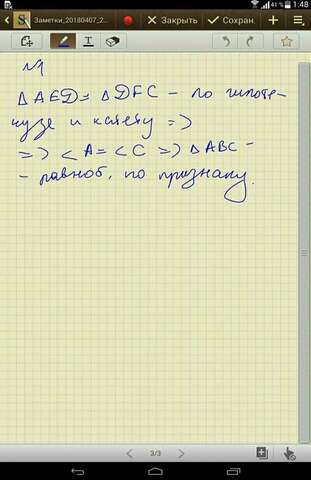 41% 1:48
Заметки_20180407_2...
Закрыть
Сохран.
№1
△AED = △DFC - по гипоте-
нузе и катету =>
=> <A = <C => △ABC -
- равноб. по признаку.
3/3